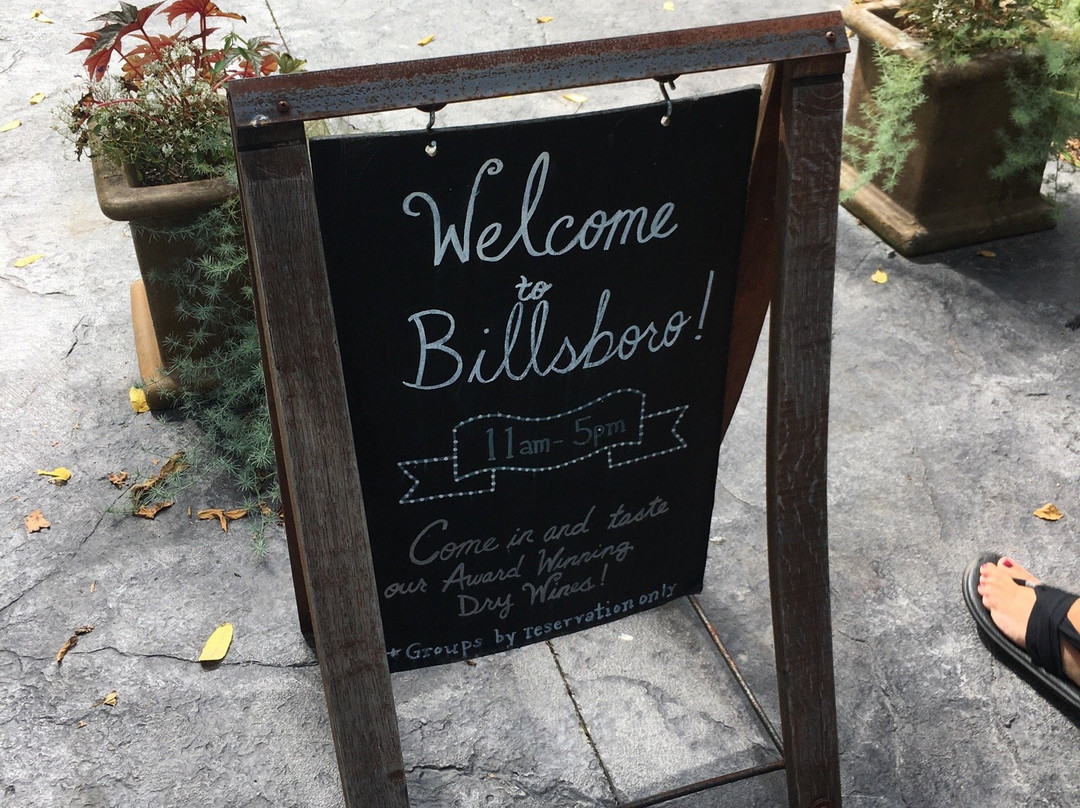 Welcome
to
Billsboro!
11am - 5pm
Come in and taste
our Award Winning
Dry Wines!
* Groups by reservation only